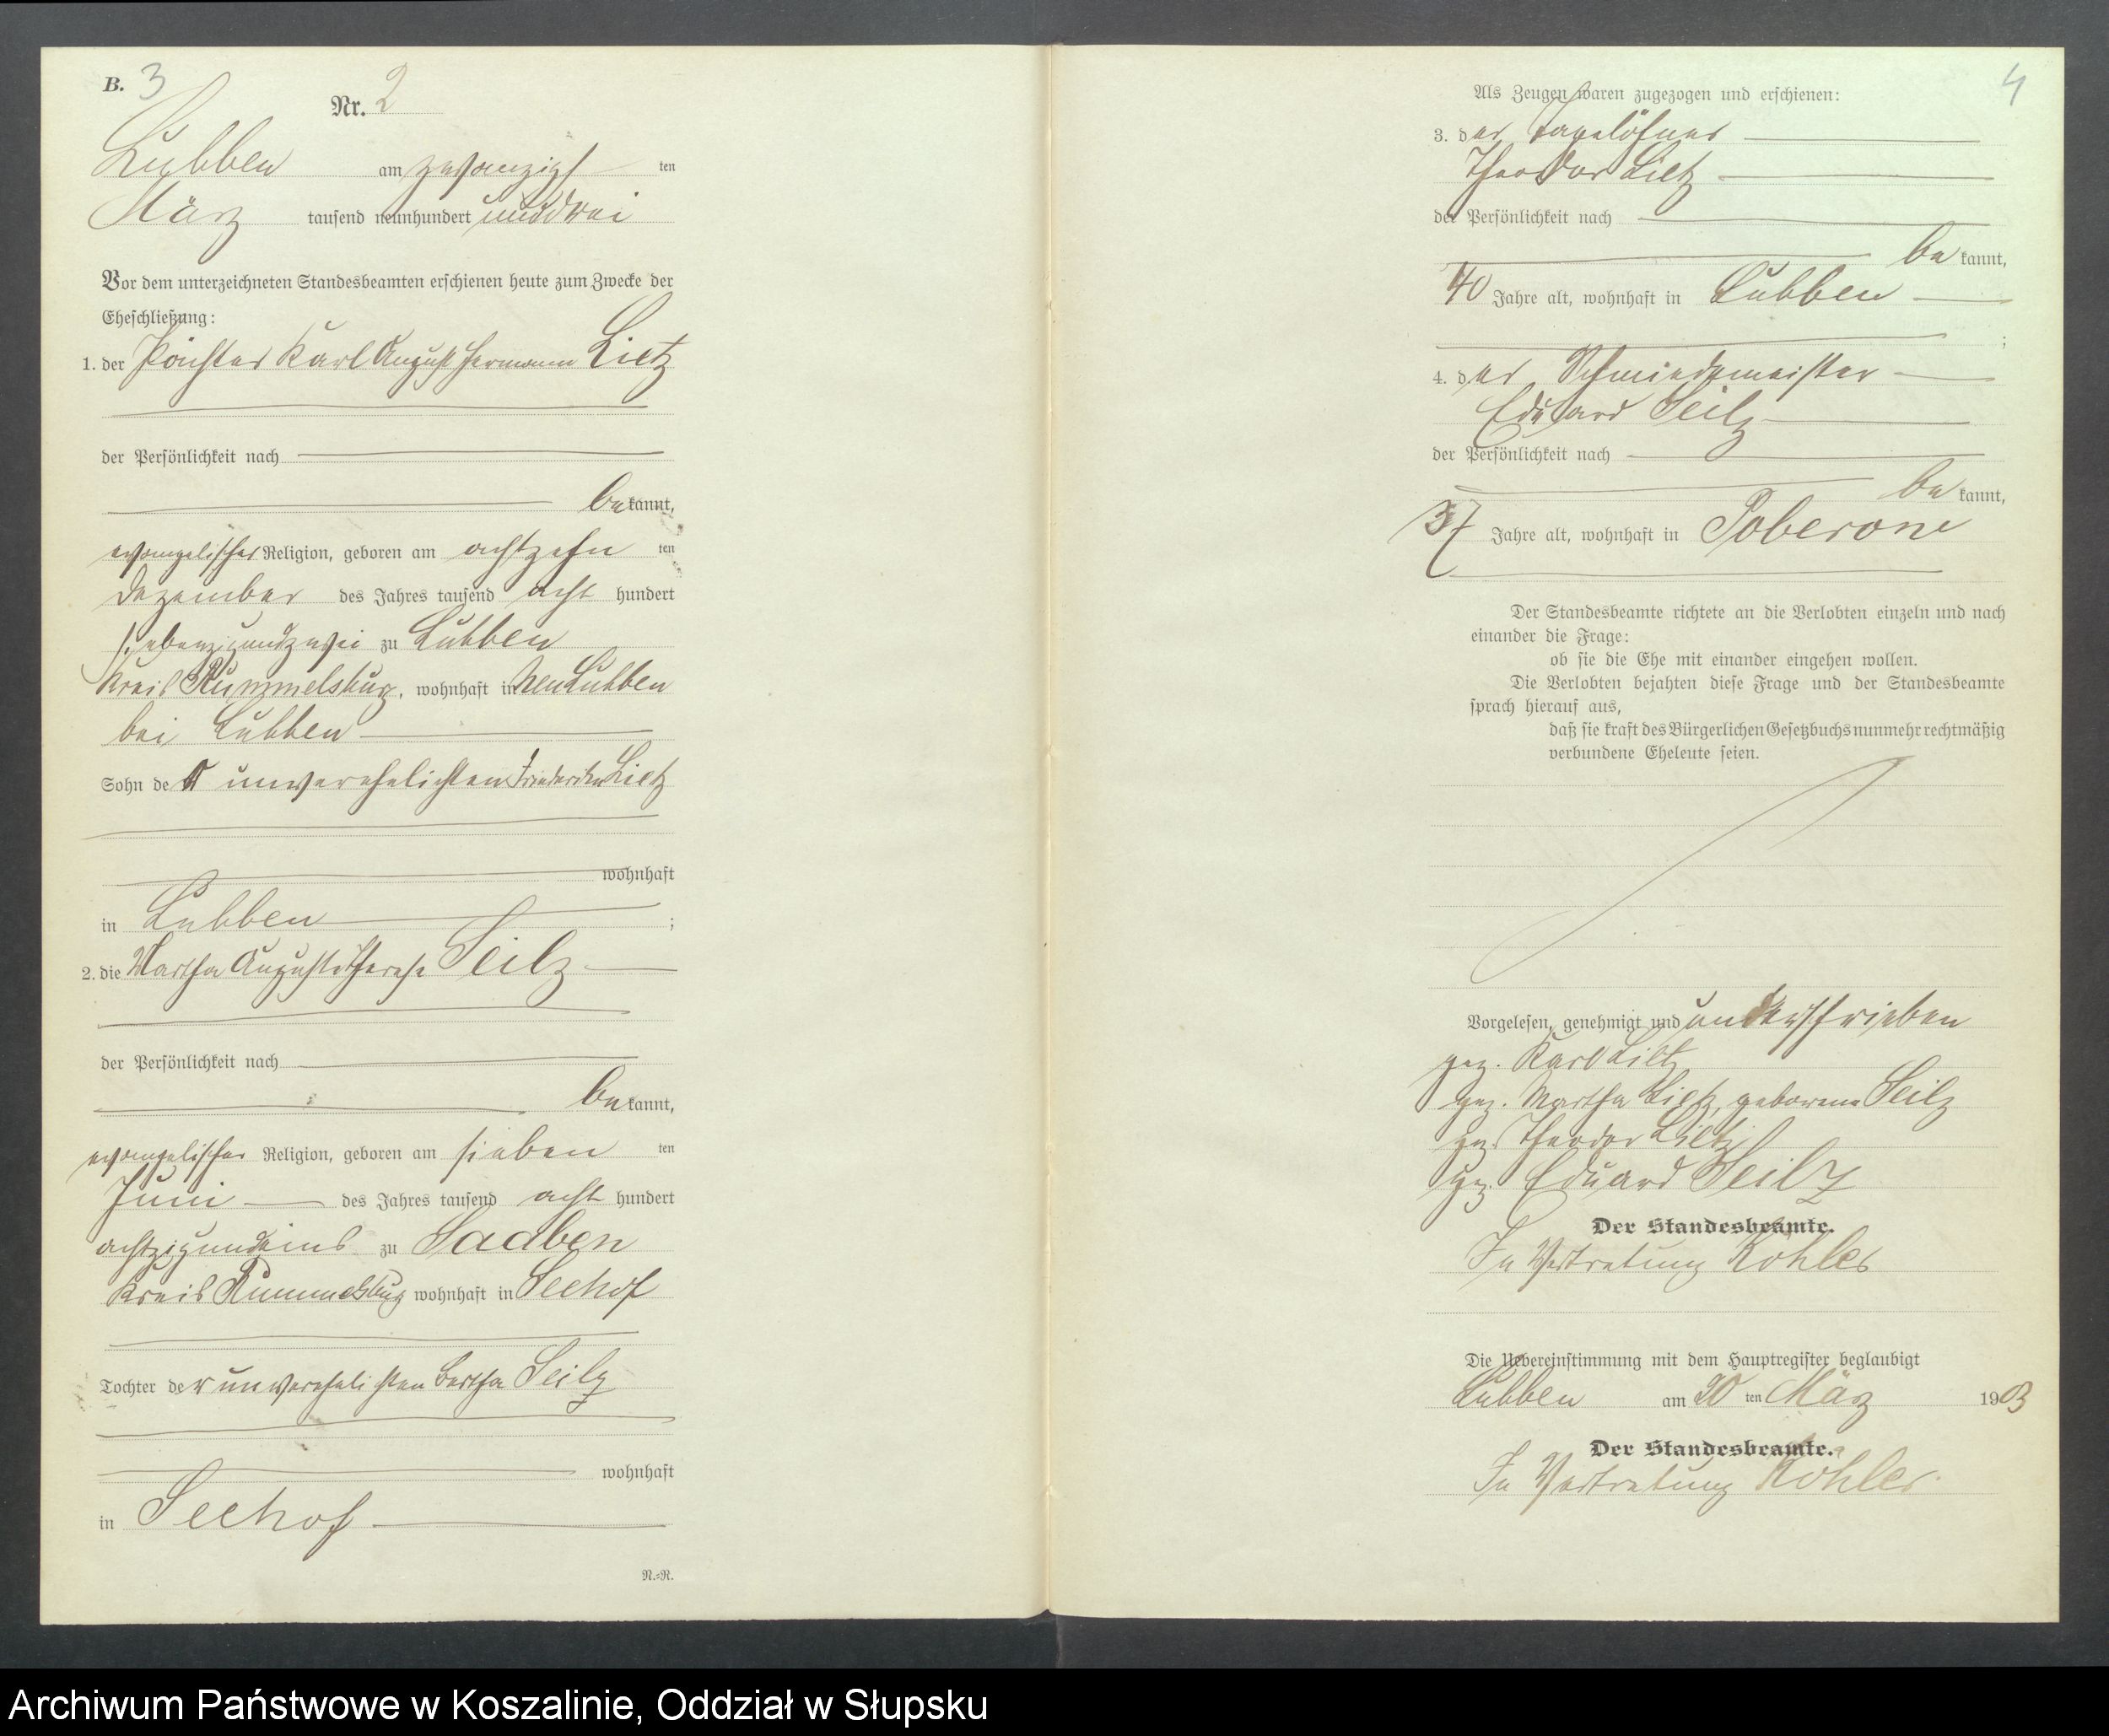 B. 3
Nr. 2
Lubben am zwanzigsten
März tausend neunhundert und drei
Vor dem unterzeichneten Standesbeamten erschienen heute zum Zwecke der
Eheschließung:
1. der Pächter Karl August Hermann Lietz
der Persönlichkeit nach
bekannt,
evangelischer Religion, geboren am achtzehnten
Dezember des Jahres tausend acht hundert
siebenzigundzwei zu Lubben
Kreis Rummelsburg, wohnhaft in Neu Lubben
bei Lubben
Sohn der unverehelichten Friederike Lietz
wohnhaft
in Lubben ;
2. die Martha Auguste Therese Seilz
der Persönlichkeit nach
bekannt,
evangelischer Religion, geboren am siebenten
Juni des Jahres tausend acht hundert
achtzigundeins zu Saaben
Kreis Rummelsburg wohnhaft in Seehof
Tochter der unverehelichten Bertha Seilz
wohnhaft
in Seehof
N.=R.
4
Als Zeugen waren zugezogen und erschienen:
3. der Tagelöhner
Theodor Lietz
der Persönlichkeit nach
bekannt,
40 Jahre alt, wohnhaft in Lubben
;
4. der Schmiedemeister
Eduard Seilz
der Persönlichkeit nach
bekannt,
37 Jahre alt, wohnhaft in Poberow
Der Standesbeamte richtete an die Verlobten einzeln und nach
einander die Frage:
ob sie die Ehe mit einander eingehen wollen.
Die Verlobten bejahten diese Frage und der Standesbeamte
sprach hierauf aus,
daß sie kraft des Bürgerlichen Gesetzbuchs nunmehr rechtmäßig
verbundene Eheleute seien.
Vorgelesen, genehmigt und unterschrieben
gez. Karl Lietz
gez. Martha Lietz, geborene Seilz
gez. Theodor Lietz
gez. Eduard Seilz
Der Standesbeamte.
In Vertretung Köhler
Die Uebereinstimmung mit dem Hauptregister beglaubigt
Lubben am 20 ten März 1903
Der Standesbeamte.
In Vertretung Köhler.
Archiwum Państwowe w Koszalinie, Oddział w Słupsku